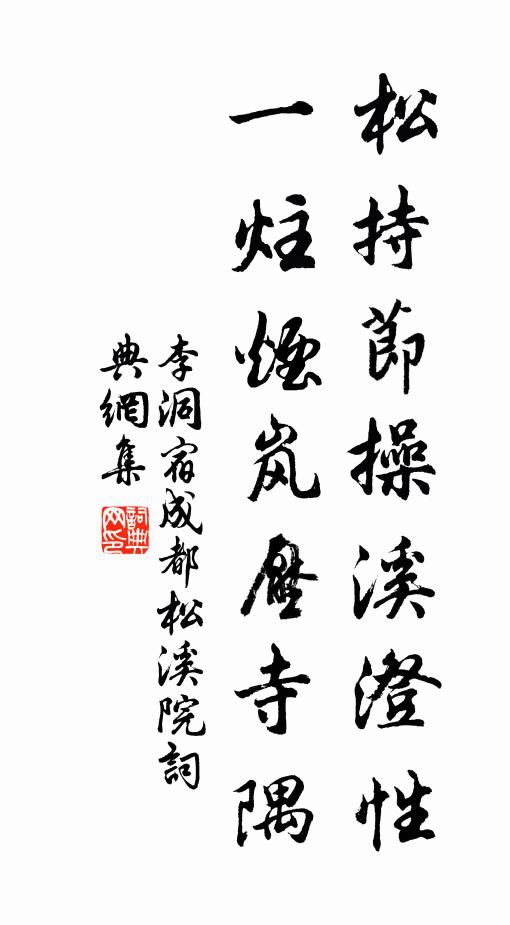 松持節操溪澄性
一炷煙岚壓寺隅
李洞宿成都松溪院詞
典網集
詞典网印